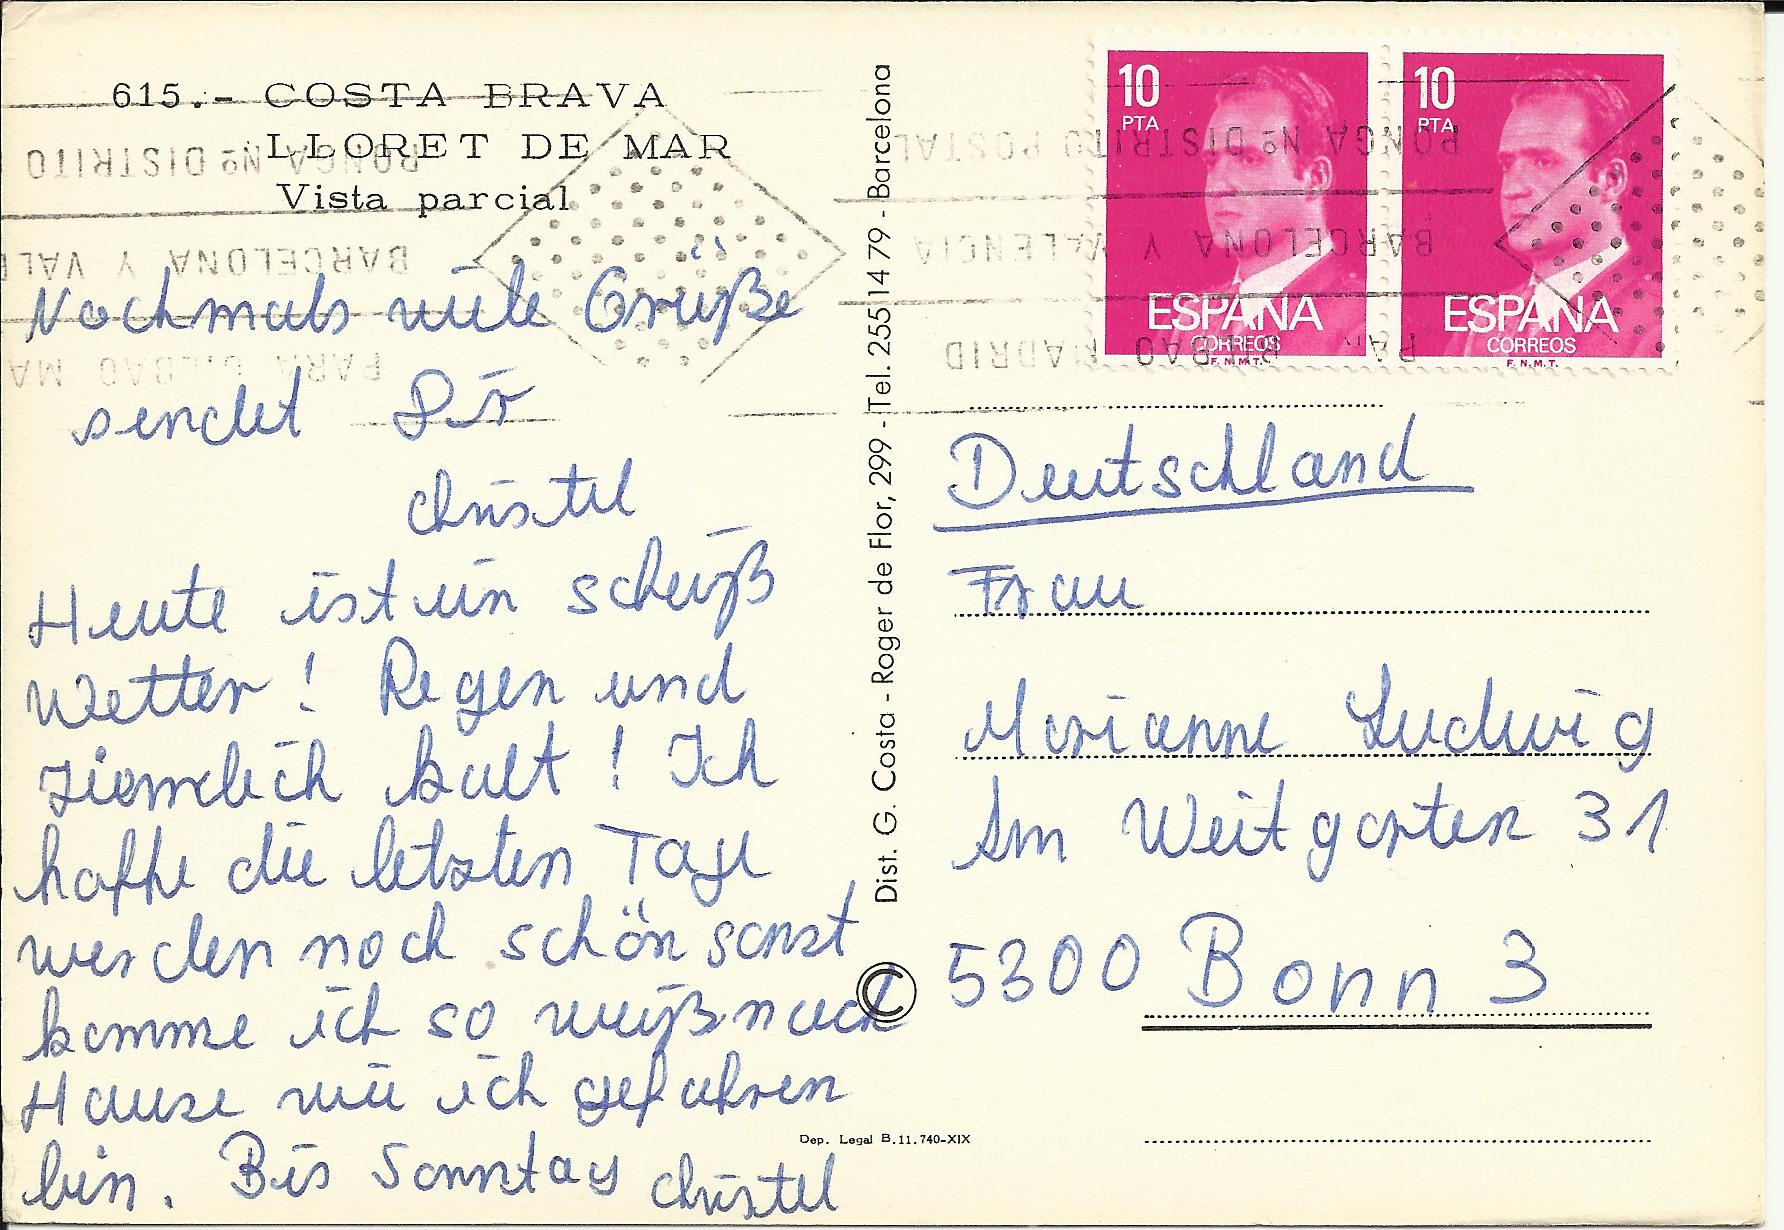 615.- COSTA BRAVA
LLORET DE MAR
Vista parcial
Nochmals viele Grüße
sendet Dir
Christel
Heute ist ein scheiß
Wetter! Regen und
ziemlich kalt! Ich
hoffe die letzten Tage
werden noch schön sonst
komme ich so weiß nach
Hause wie ich gefahren
bin. Bis Sonntag Christel
Dep. Legal B.11.740-XIX
Dist. G. Costa - Roger de Flor, 299 - Tel. 255 14 79 - Barcelona
©
10
PTA
ESPAÑA
CORREOS
F.N.M.T.
10
PTA
ESPAÑA
CORREOS
F.N.M.T.
PONGA Nº DISTRITO POSTAL
BARCELONA Y VALENCIA
PARA BILBAO MADRID
PONGA Nº DISTRITO
BARCELONA Y VALE
PARA BILBAO MA
Deutschland
Frau
Marianne Ludwig
Am Weitgarten 31
5300 Bonn 3